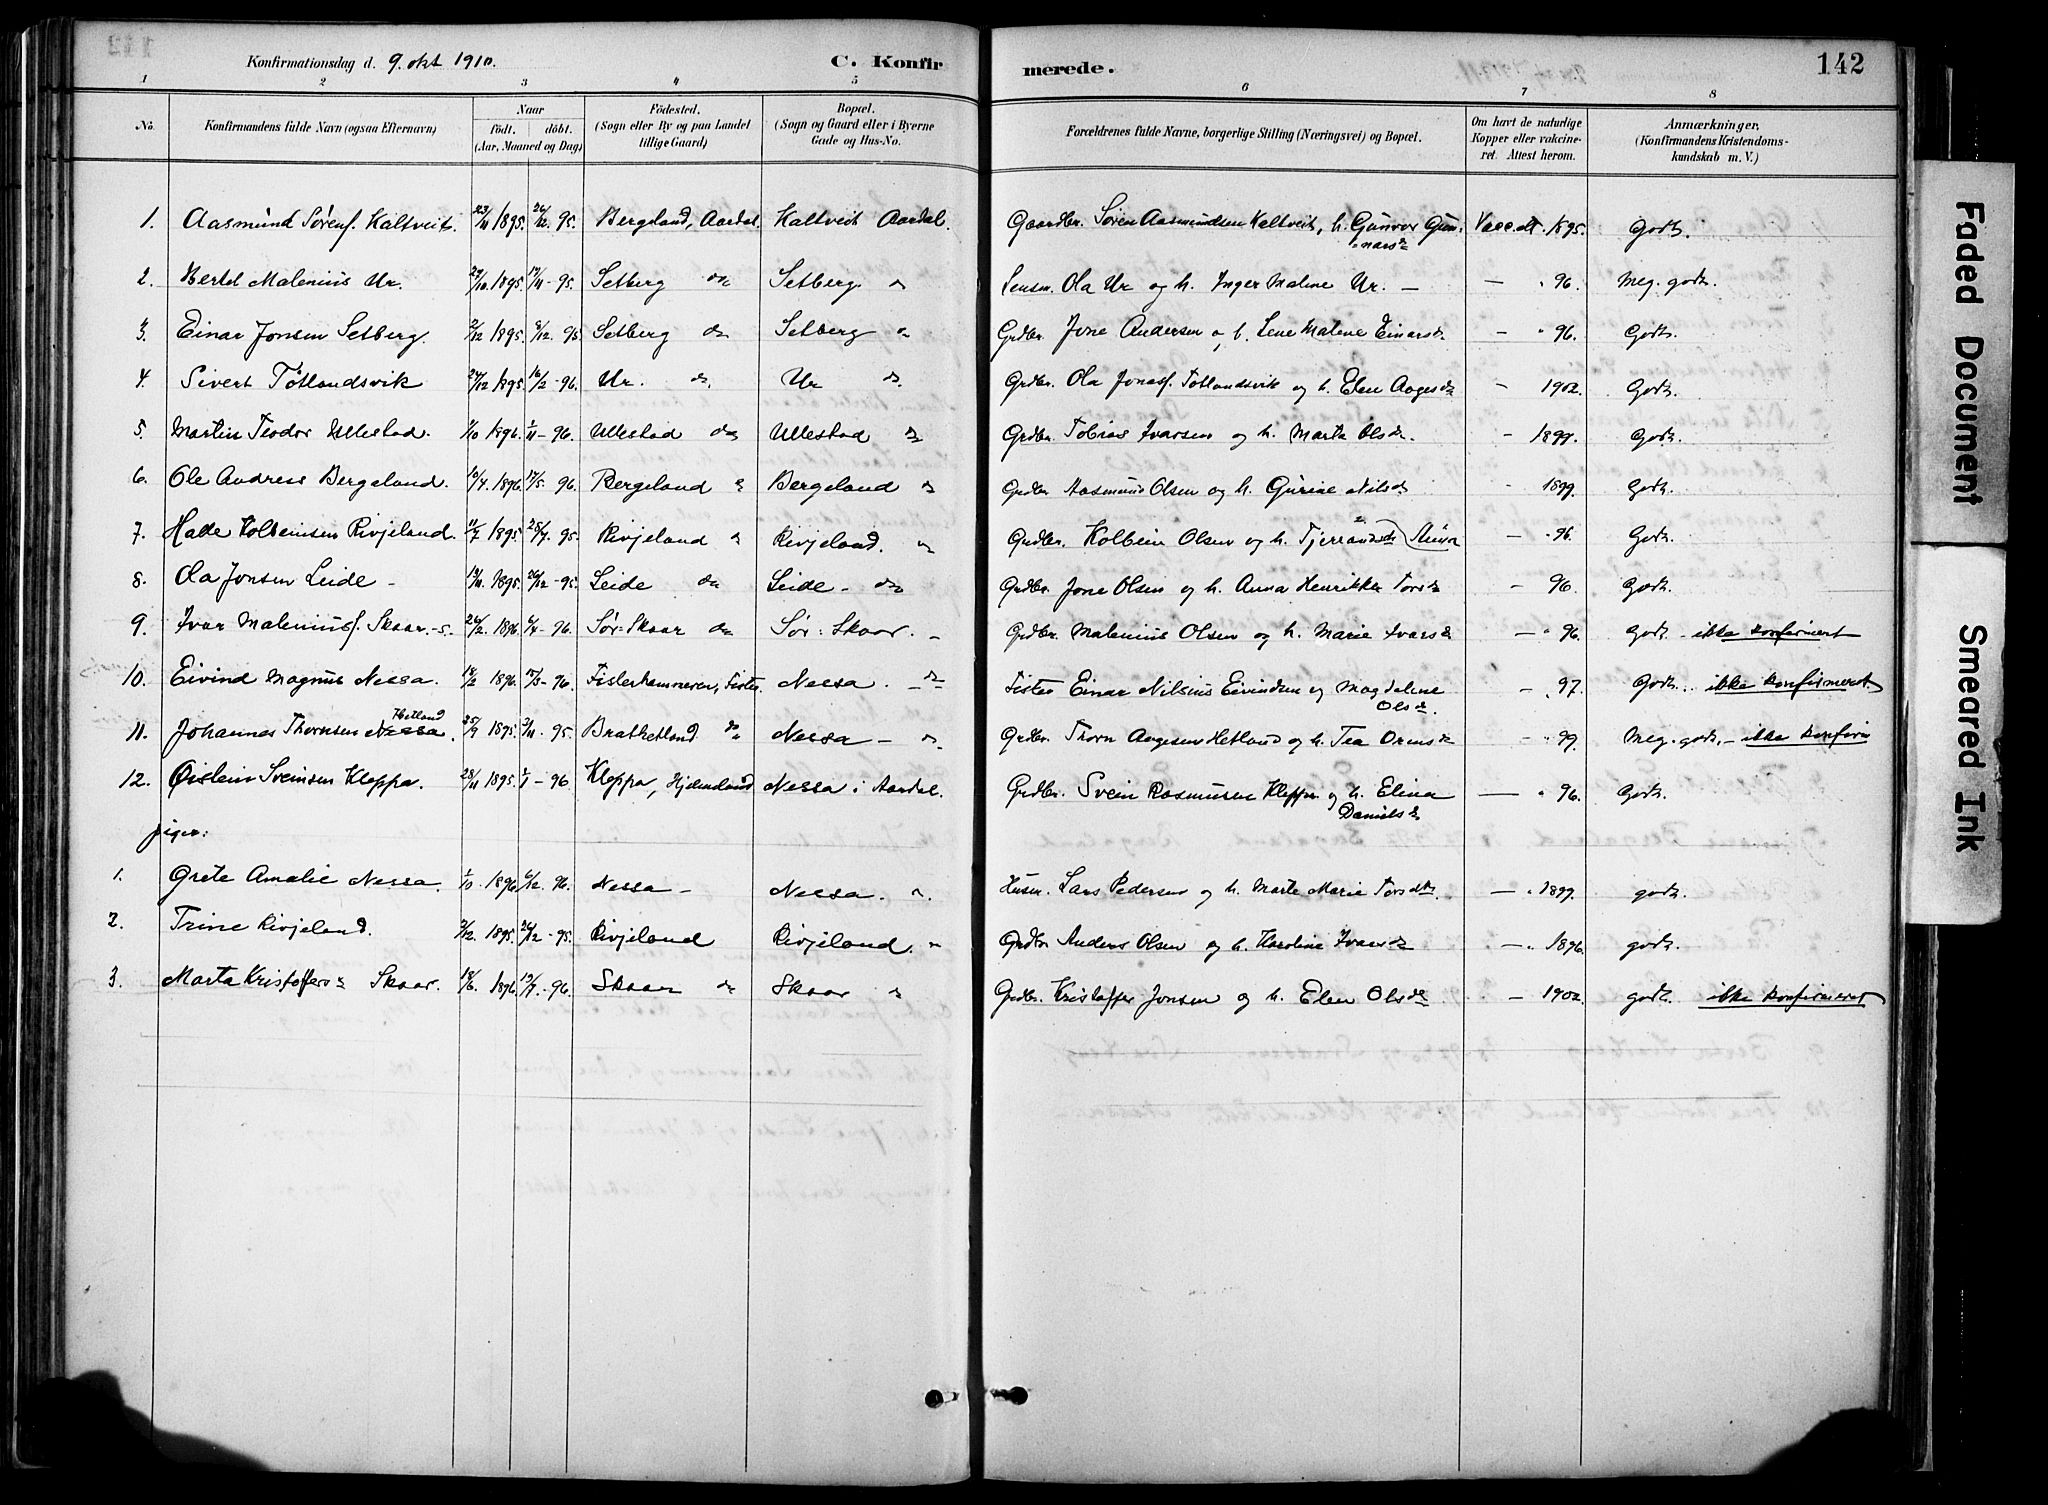 Konfirmationsdag d. 9. okt 1910. C. Konfirmerede. 142
1 2 3 4 5 6 7 8
No. Konfirmandens fulde Navn (ogsaa Efternavn) Naar födt. döbt. (Aar, Maaned og Dag) Födested. (Sogn eller By og paa Landet tillige Gaard) Bopæl. (Sogn og Gaard eller i Byerne Gade og Hus-No. Forældrenes fulde Navne, borgerlige Stilling (Næringsvei) og Bopæl. Om havt de naturlige Kopper eller vakcineret. Attest herom. Anmærkninger, (Konfirmandens Kristendomskundskab m. V.)
1. Aasmund Sørens. Kaltveit. 23/11 1895. 26/12. 95. Bergeland, Aardal. Kaltveit Aardal. Gaardbr. Søren Aasmundsen Kaltveit, h. Gunvor Gunnarsd. Vacc. att. 1895. Godt.
2. Bertel Malenius Ur. 29/10. 1895. 17/11 - 95. Setberg do Setberg do Lensm. Ola Ur og h. Inger Malene Ur. — — " 96. Meg. godt.
3. Einar Jonsen Setberg. 2/12 1895. 8/12. 95 Setberg do Setberg do Grdbr. Jone Andersen o, h. Lene Malene Einarsd. — " 96. Godt.
4. Sivert Tøtlandsvik 24/12 1895. 16/2 - 96. Ur. do. Ur do. Grdbr. Ola Jonass. Tøtlandsvik og h. Elen Aagesd. — 1902. Godt.
5. Martin Teodor Ullestad. 1/10 1896. 1/11 - 96. Ullestad do Ullestad do Grdbr. Tobias Ivarsen og h. Marta Olsd. - 1899. Godt.
6. Ole Andreas Bergeland. 10/4. 1896. 17/5. 96. Bergeland do Bergeland do Grdbr. Aasmund Olsen og h. Gurine Nilsd. " 1899. Godt.
7. Halle Kolbeinsen Rivjeland. 11/7 1895. 28/7. 95. Rivjeland do Rivjeland. do Grdbr. Kolbein Olsen og h. — " 96. Godt.
8. Ola Jonsen Leide - 19/11. 1895. 26/12 - 95. Leide do Leide - do Grdbr. Jone Olsen og h. Anna Henrikke Torsd. — 96. Godt.
9. Ivar Maleniuss. Skaar. -s. 26/2. 1896. 6/4 - 96. Sør-Skaar do Sør-Skaar. — Grdbr. Malenius Olsen og h. Marie Ivarsd. — " 96. Godt - ikke konfirmert
10. Eivind Magnus Nessa. 18/2 1896. 17/5 - 96. Fisterhammeren, Fister Nessa. do Fister Einar Nilsius Eivindsen og Magdalene Olsd. — " 97. Godt. ikke konfirmeret.
11. Johannes Thornsen Nessa. Hetland 25/9 1895. 3/11 - 95. Brathetland do Nessa - do. Grdbr. Thorn Aagesen Hetland og h. Tea Ormsd. — " 99. Meg. godt, - ikke konfirm
12. Øistein Sveinsen Kleppa. 28/11 1895. 1/1 - 96. Kleppa, Hjelmeland Nessa i Aardal. Grdbr. Svein Rasmusen Kleppa og h. Elina Danielsd. — " 96. Godt.
piger:
1. Grete Amalie Nessa. 1/10 - 1896 6/12. 96. Nessa - Nessa. " Husm. Lars Pedersen og h. Marte Marie Torsd. — " 1899. godt.
2. Trine Rivjeland. 2/12. 1895. 26/12 - 95. Rivjeland Rivjeland. " Grdbr Anders Olsen og h. Karoline Ivarsd. — " 1896. godt.
3. Marta Kristoffersd. Skaar. 18/6. 1896. 19/7 - 96. Skaar do Skaar do Grdbr. Kristoffer Jonsen og h. Elen Olsd. — 1902. godt. ikke konfirmeret
Faded Document
Smeared Ink